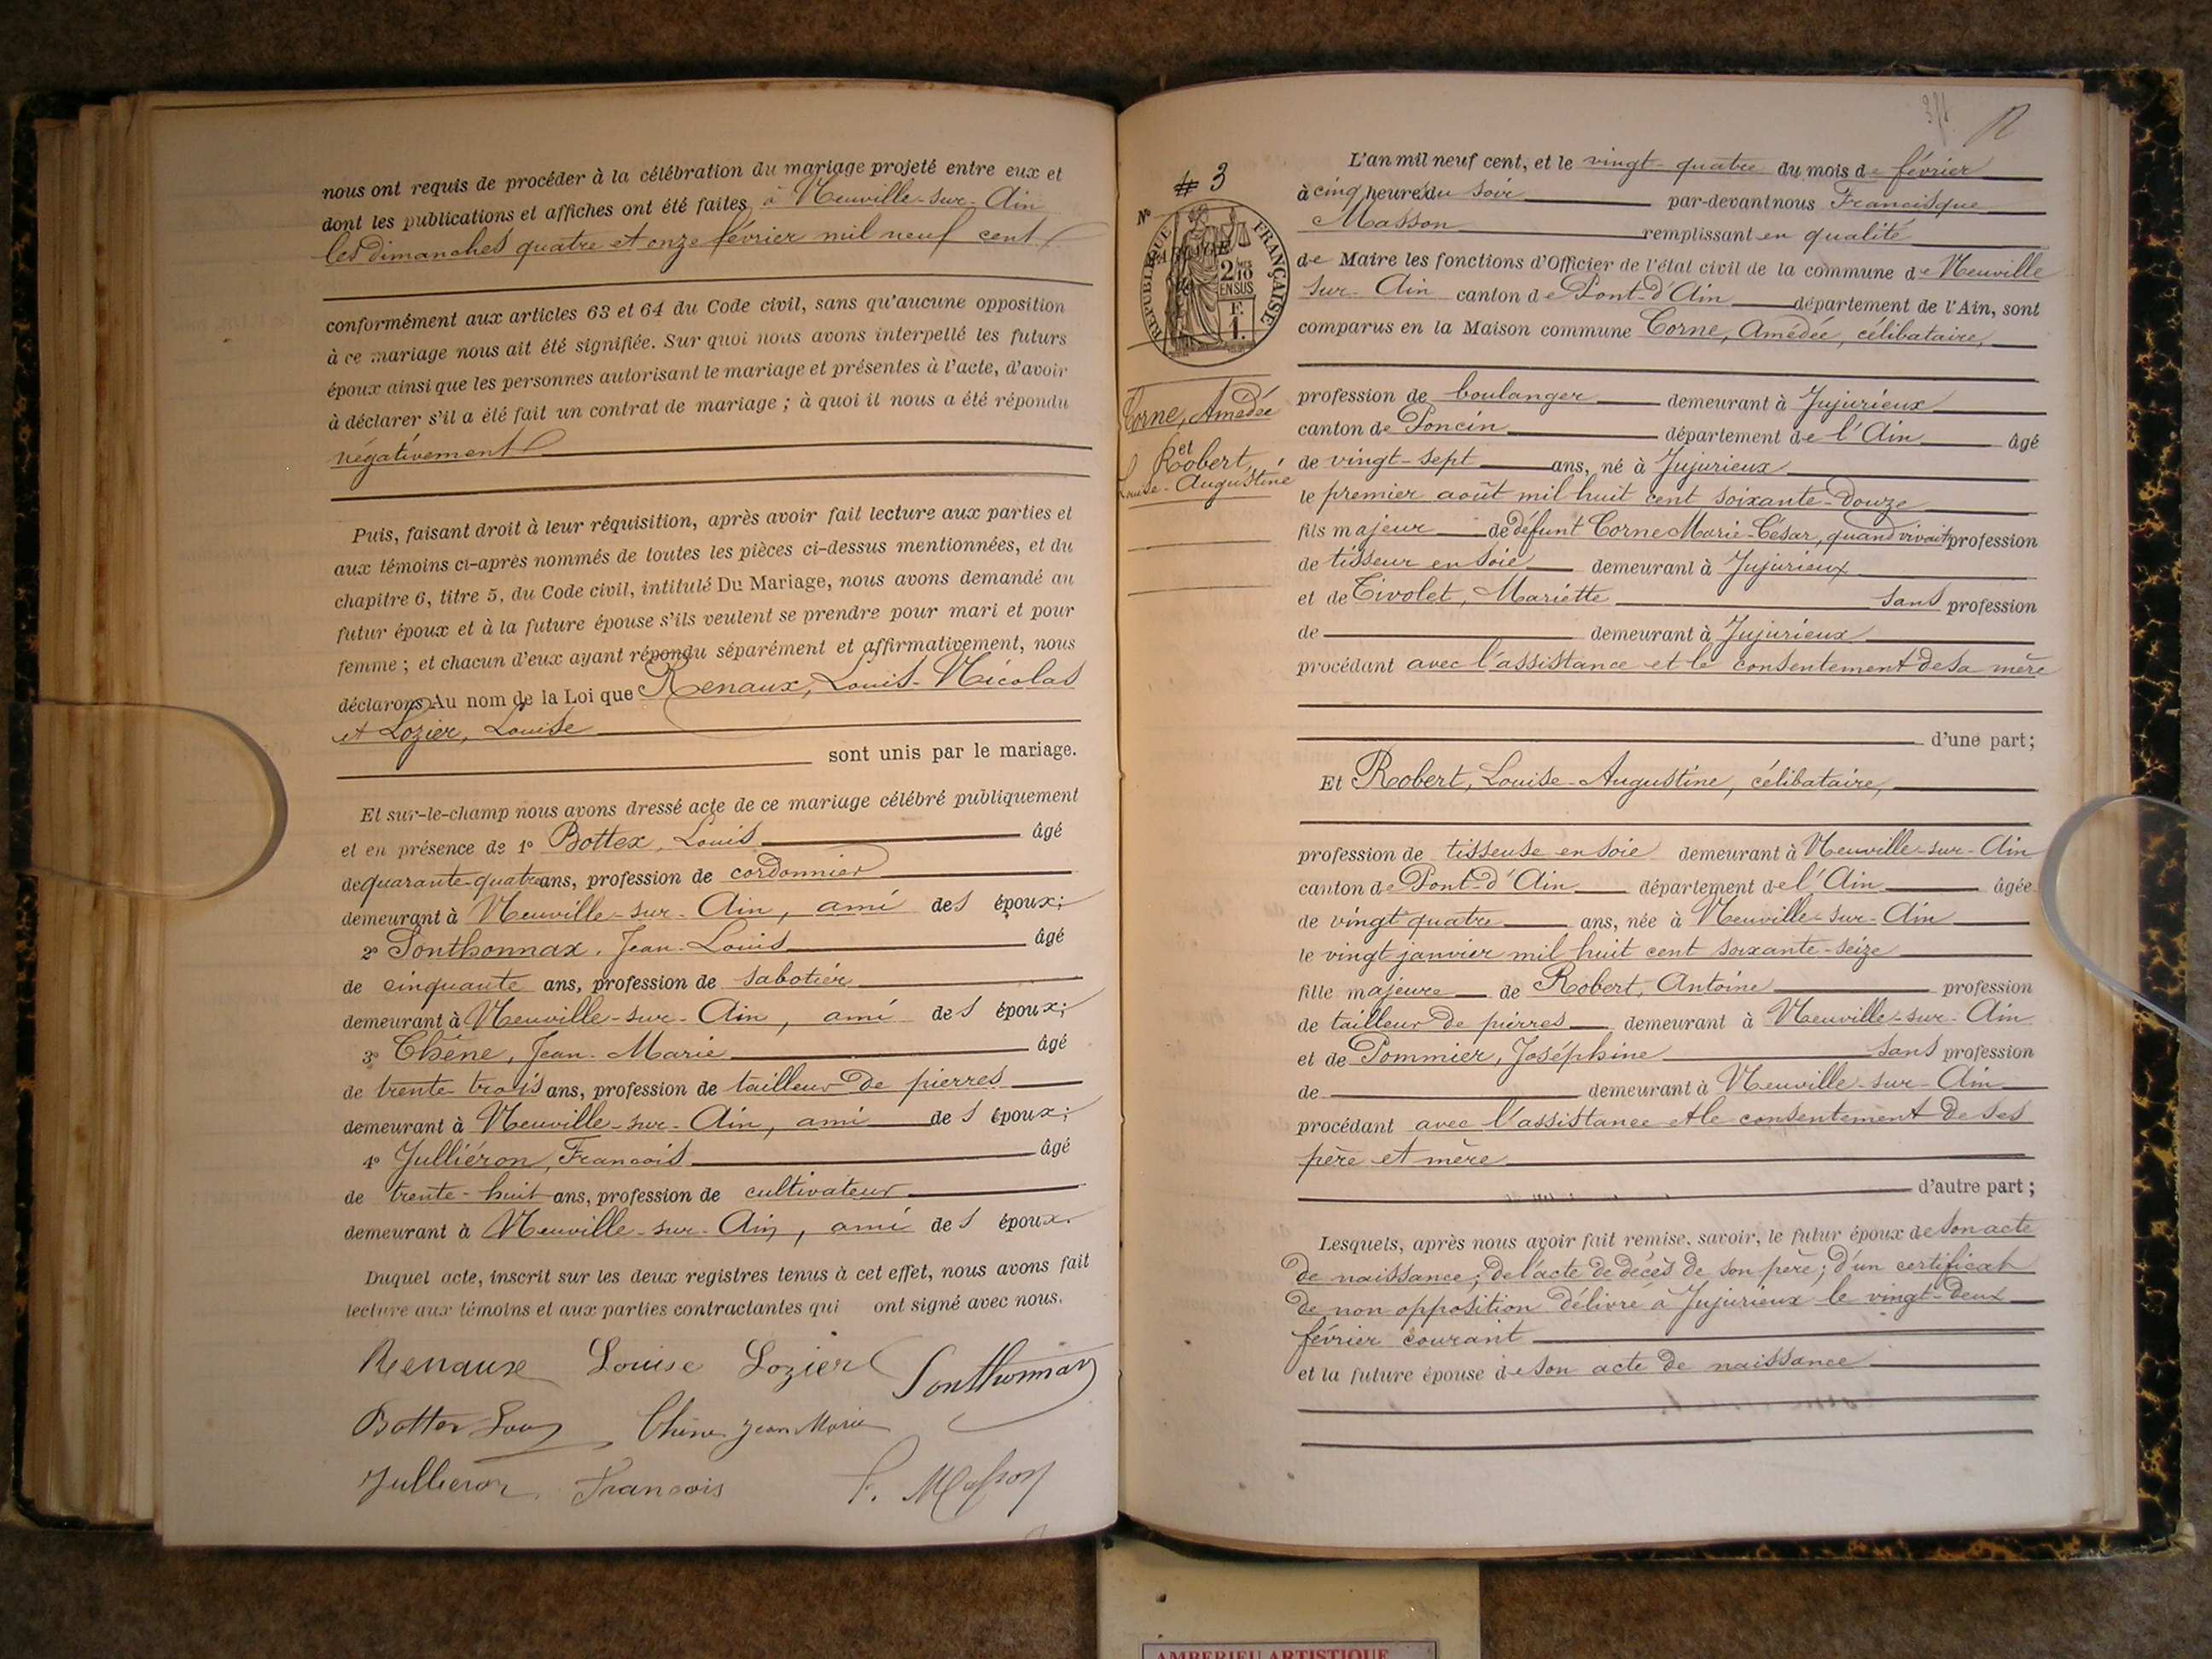 nous ont requis de procéder à la célébration du mariage projeté entre eux et
dont les publications et affiches ont été faites à Neuville-sur-Ain
les dimanches quatre et onze février mil neuf cent
conformément aux articles 63 et 64 du Code civil, sans qu'aucune opposition
à ce mariage nous ait été signifiée. Sur quoi nous avons interpellé les futurs
époux ainsi que les personnes autorisant le mariage et présentes à l'acte, d'avoir
à déclarer s'il a été fait un contrat de mariage ; à quoi il nous a été répondu
négativement
Puis, faisant droit à leur réquisition, après avoir fait lecture aux parties et
aux témoins ci-après nommés de toutes les pièces ci-dessus mentionnées, et du
chapitre 6, titre 5, du Code civil, intitulé Du Mariage, nous avons demandé au
futur époux et à la future épouse s'ils veulent se prendre pour mari et pour
femme ; et chacun d'eux ayant répondu séparément et affirmativement, nous
déclarons Au nom de la Loi que Renaux, Louis-Nicolas
et Lozier, Louise
sont unis par le mariage.
Et sur-le-champ nous avons dressé acte de ce mariage célébré publiquement
et en présence de 1° Bottex, Louis âgé
de quarante-quatre ans, profession de cordonnier
demeurant à Neuville-sur-Ain, ami des époux;
2° Sonthonnax, Jean-Louis âgé
de cinquante ans, profession de sabotier
demeurant à Neuville-sur-Ain, ami des époux;
3° Chêne, Jean-Marie âgé
de trente-trois ans, profession de tailleur de pierres
demeurant à Neuville-sur-Ain, ami des époux;
4° Julliéron, François âgé
de trente-huit ans, profession de cultivateur
demeurant à Neuville-sur-Ain, ami des époux.
Duquel acte, inscrit sur les deux registres tenus à cet effet, nous avons fait
lecture aux témoins et aux parties contractantes qui ont signé avec nous.
Renaux Louise Lozier Sonthonnax
Bottex Louis Chêne Jean Marie
Jullieron François F. Masson
# 3
N°
RÉPUBLIQUE FRANÇAISE
2 10 MES
EN SUS
F.
1.
Corne, Amédée
et
Robert,
Louise-Augustine
L'an mil neuf cent, et le vingt-quatre du mois de février
à cinq heures du soir par-devant nous Francisque
Masson remplissant en qualité
de Maire les fonctions d'Officier de l'état civil de la commune de Neuville
sur-Ain canton de Pont-d'Ain département de l'Ain, sont
comparus en la Maison commune Corne, Amédée, célibataire,
profession de boulanger demeurant à Jujurieux
canton de Poncin département de l'Ain âgé
de vingt-sept ans, né à Jujurieux
le premier août mil huit cent soixante-douze
fils majeur de défunt Corne Marie-César, quand vivait profession
de tisseur en soie demeurant à Jujurieux
et de Tivolet, Mariette sans profession
de demeurant à Jujurieux
procédant avec l'assistance et le consentement de sa mère
d'une part;
Et Robert, Louise-Augustine, célibataire,
profession de tisseuse en soie demeurant à Neuville-sur-Ain
canton de Pont-d'Ain département de l'Ain âgée
de vingt quatre ans, née à Neuville-sur-Ain
le vingt janvier mil huit cent soixante-seize
fille majeure de Robert, Antoine profession
de tailleur de pierres demeurant à Neuville-sur-Ain
et de Pommier, Joséphine sans profession
de demeurant à Neuville-sur-Ain
procédant avec l'assistance et le consentement de ses
père et mère
d'autre part ;
Lesquels, après nous avoir fait remise, savoir, le futur époux de son acte
de naissance; de l'acte de décès de son père; d'un certificat
de non opposition délivré à Jujurieux le vingt-deux
février courant
et la future épouse de son acte de naissance
AMBERIEU ARTISTIQUE